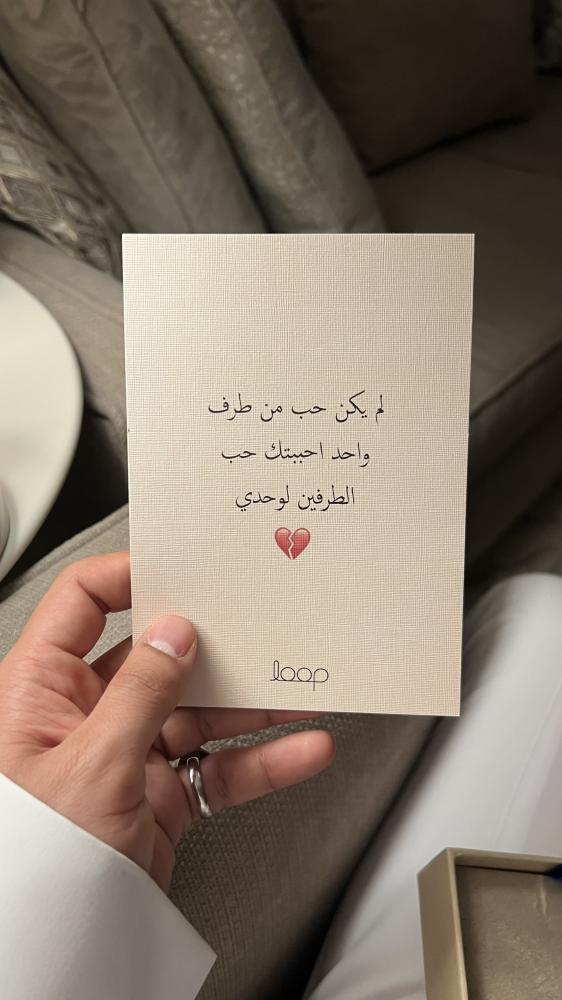 لم يكن حب من طرف
واحد احببتك حب
الطرفين لوحدي
💔
loop